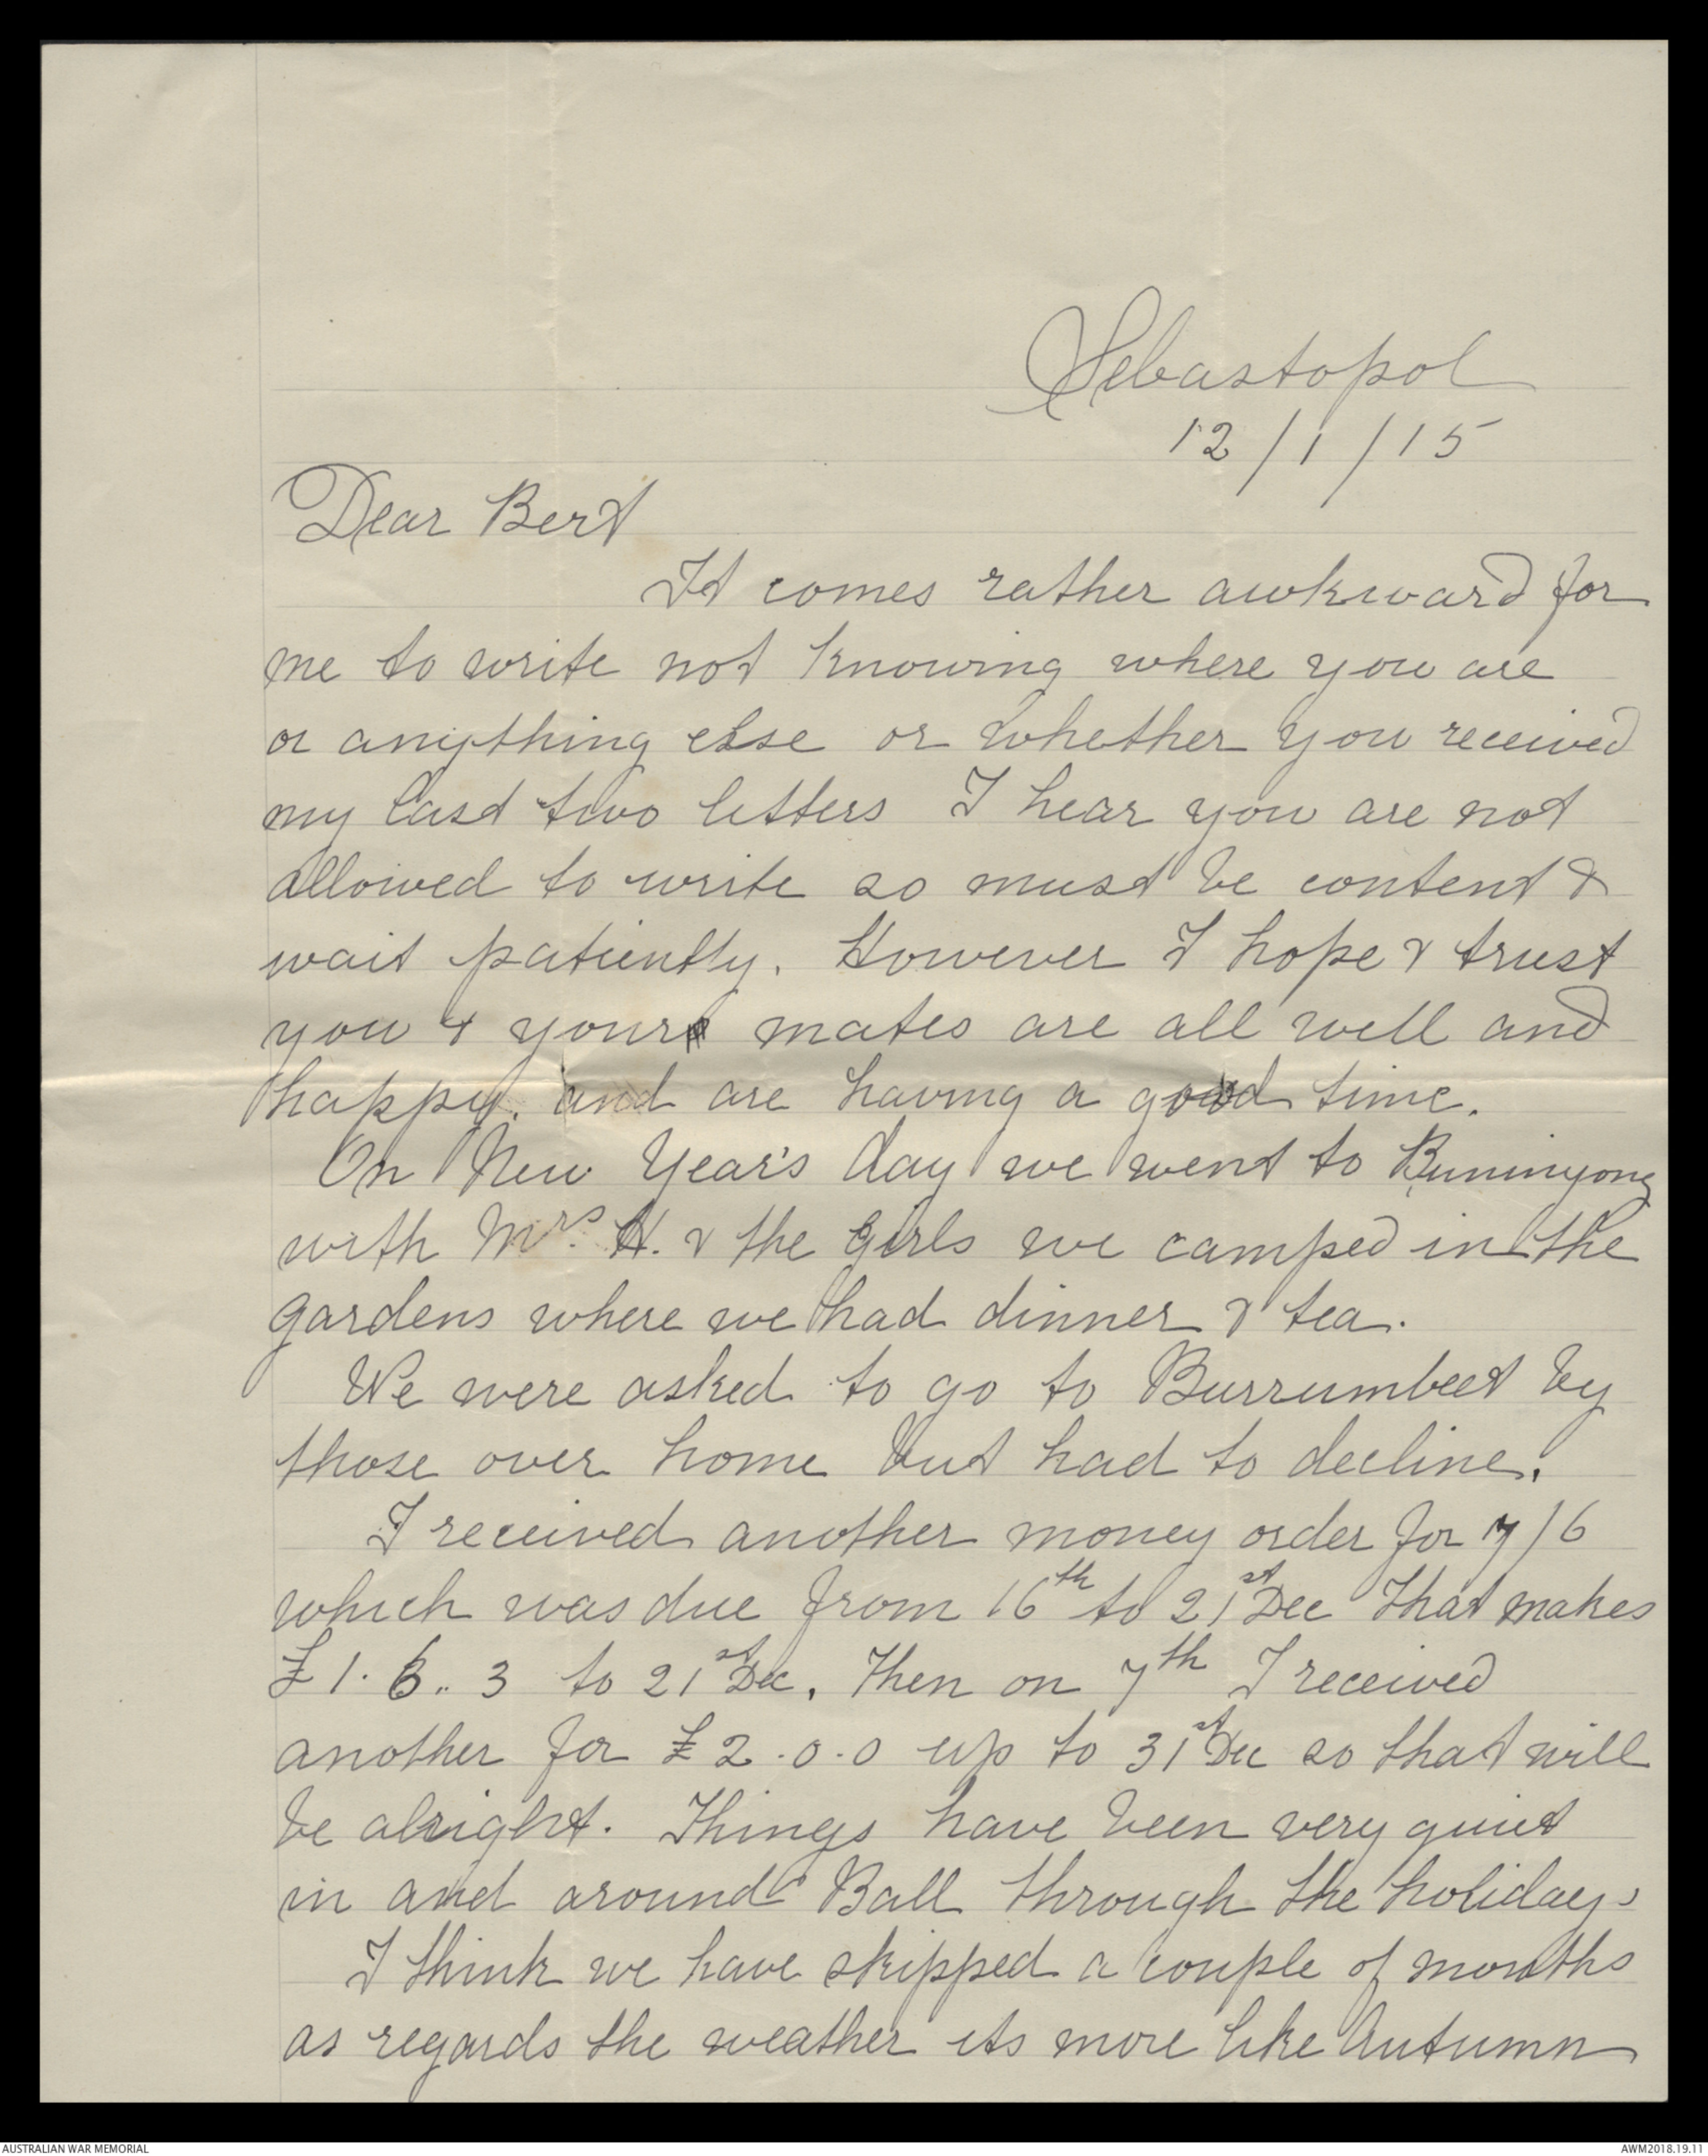 Sebastopol
12/1/15
Dear Bert
It comes rather awkward for
me to write not knowing where you are
or anything else or whether you received
my last two letters I hear you are not
allowed to write so must be content &
wait patiently. However I hope & trust
you & your mates are all well and
happy. and are having a good time.
On New Year's day we went to Buninyong
with Mrs. H. & the girls we camped in the
gardens where we had dinner & tea.
We were asked to go to Burrumbeet by
those over home but had to decline.
I received another money order for 7/6
which was due from 16th to 21st Dec That makes
£1.6..3 to 21st Dec. Then on 7th I received
another for £2.0.0 up to 31st Dec so that will
be alright. Things have been very quiet
in and around Ball through the holidays
I think we have skipped a couple of months
as regards the weather its more like Autumn
AUSTRALIAN WAR MEMORIAL
AWM2018.19.11